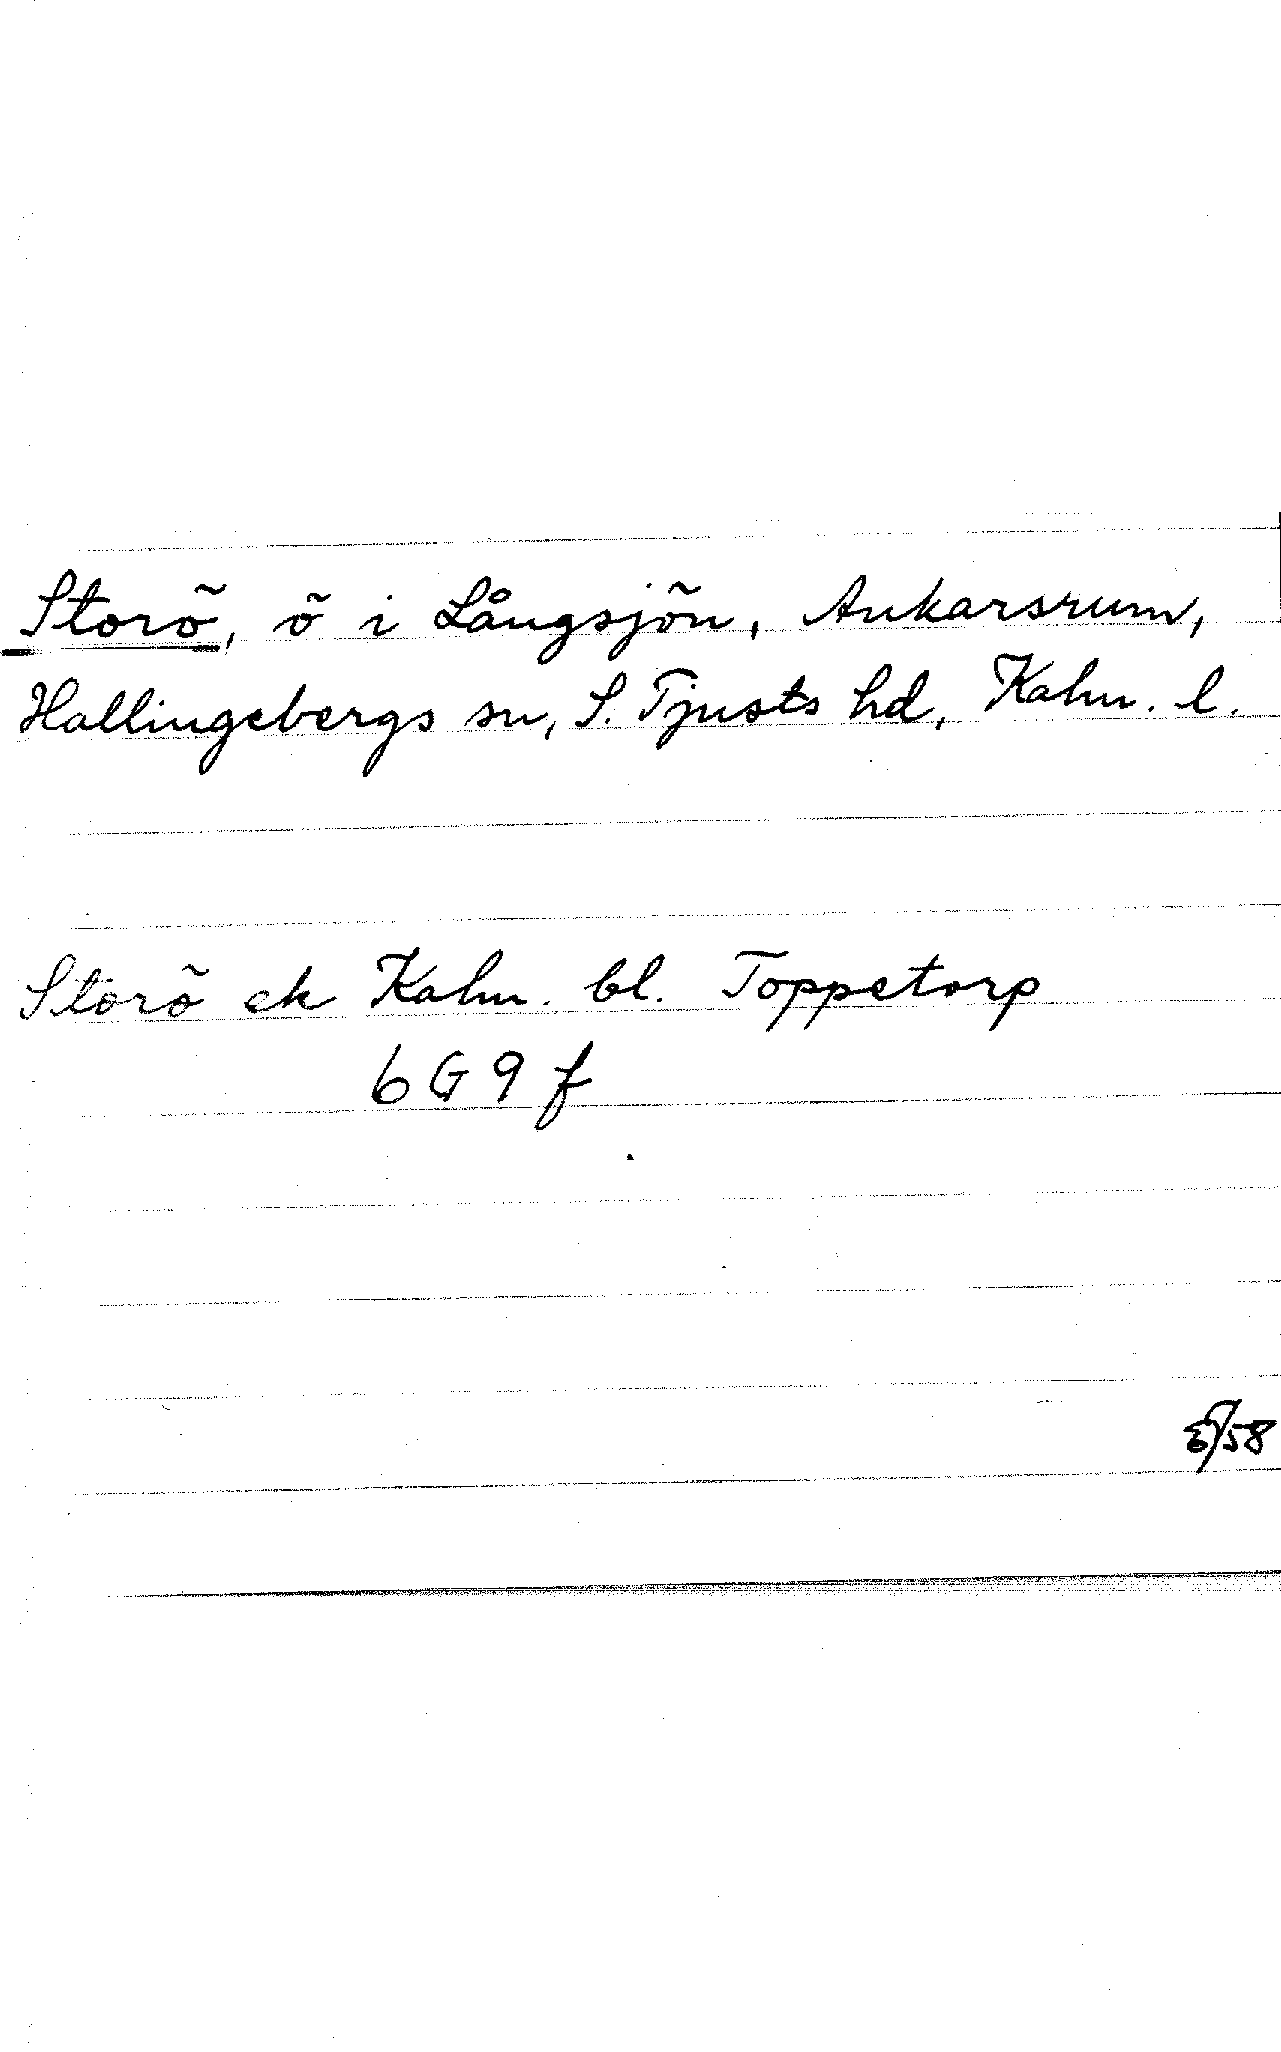 Storö, ö i Långsjön, Ankarsrum,
Hallingebergs sn, S. Tjusts hd, Kalm. l.
Storö ek Kalm. bl. Toppetorp
6G9f
/58